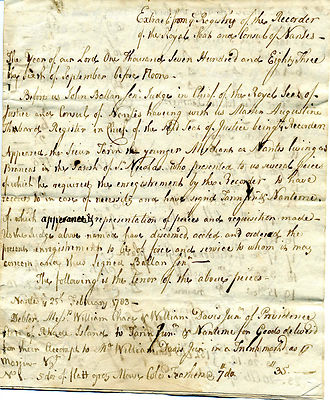 Extract from y Registry of the Recorder
of the Royal Seat and Consul of Nantes -
The Year of our Lord One Thousand Seven Hundred and Eighty Three
the Sixth of September before Noon.
Before us John Ballan Sen. Judge in Chief of the Royal Seat of
Justice and Consul of Nantes having with us Master Augustine
Register in Chief of the said Seat of Justice being y Recorder.
Appeared the Sieur the younger Merchant at Nantes living at
in the Parish of St. Nicolas. Who presented to us several pieces
of which he required the enregistrement by the Recorder to have
recourse to in case of necessity and have signed & Nanteme
of which apperance & representation of pieces and requisition made
We the Judge above named have discerned acted and ordered the
present enregistrement to of force and service to whom it may
concern also, thus Signed Ballan Sen.
The following is the tenor of the above pieces -
Nantes y 25th February 1783 -
Debtor Messrs. William Chace & William Davis Jun. of Providence
State of Rhode Island to Jun. & Nanteme for Goods delivered
for their Accompt to Mr. William Davis Jun. in a Trunk marked as p
Margin - Vizt.
No. 1 5 doz. of flatt grey Mowr Cold Feathers @ 7 do. 35